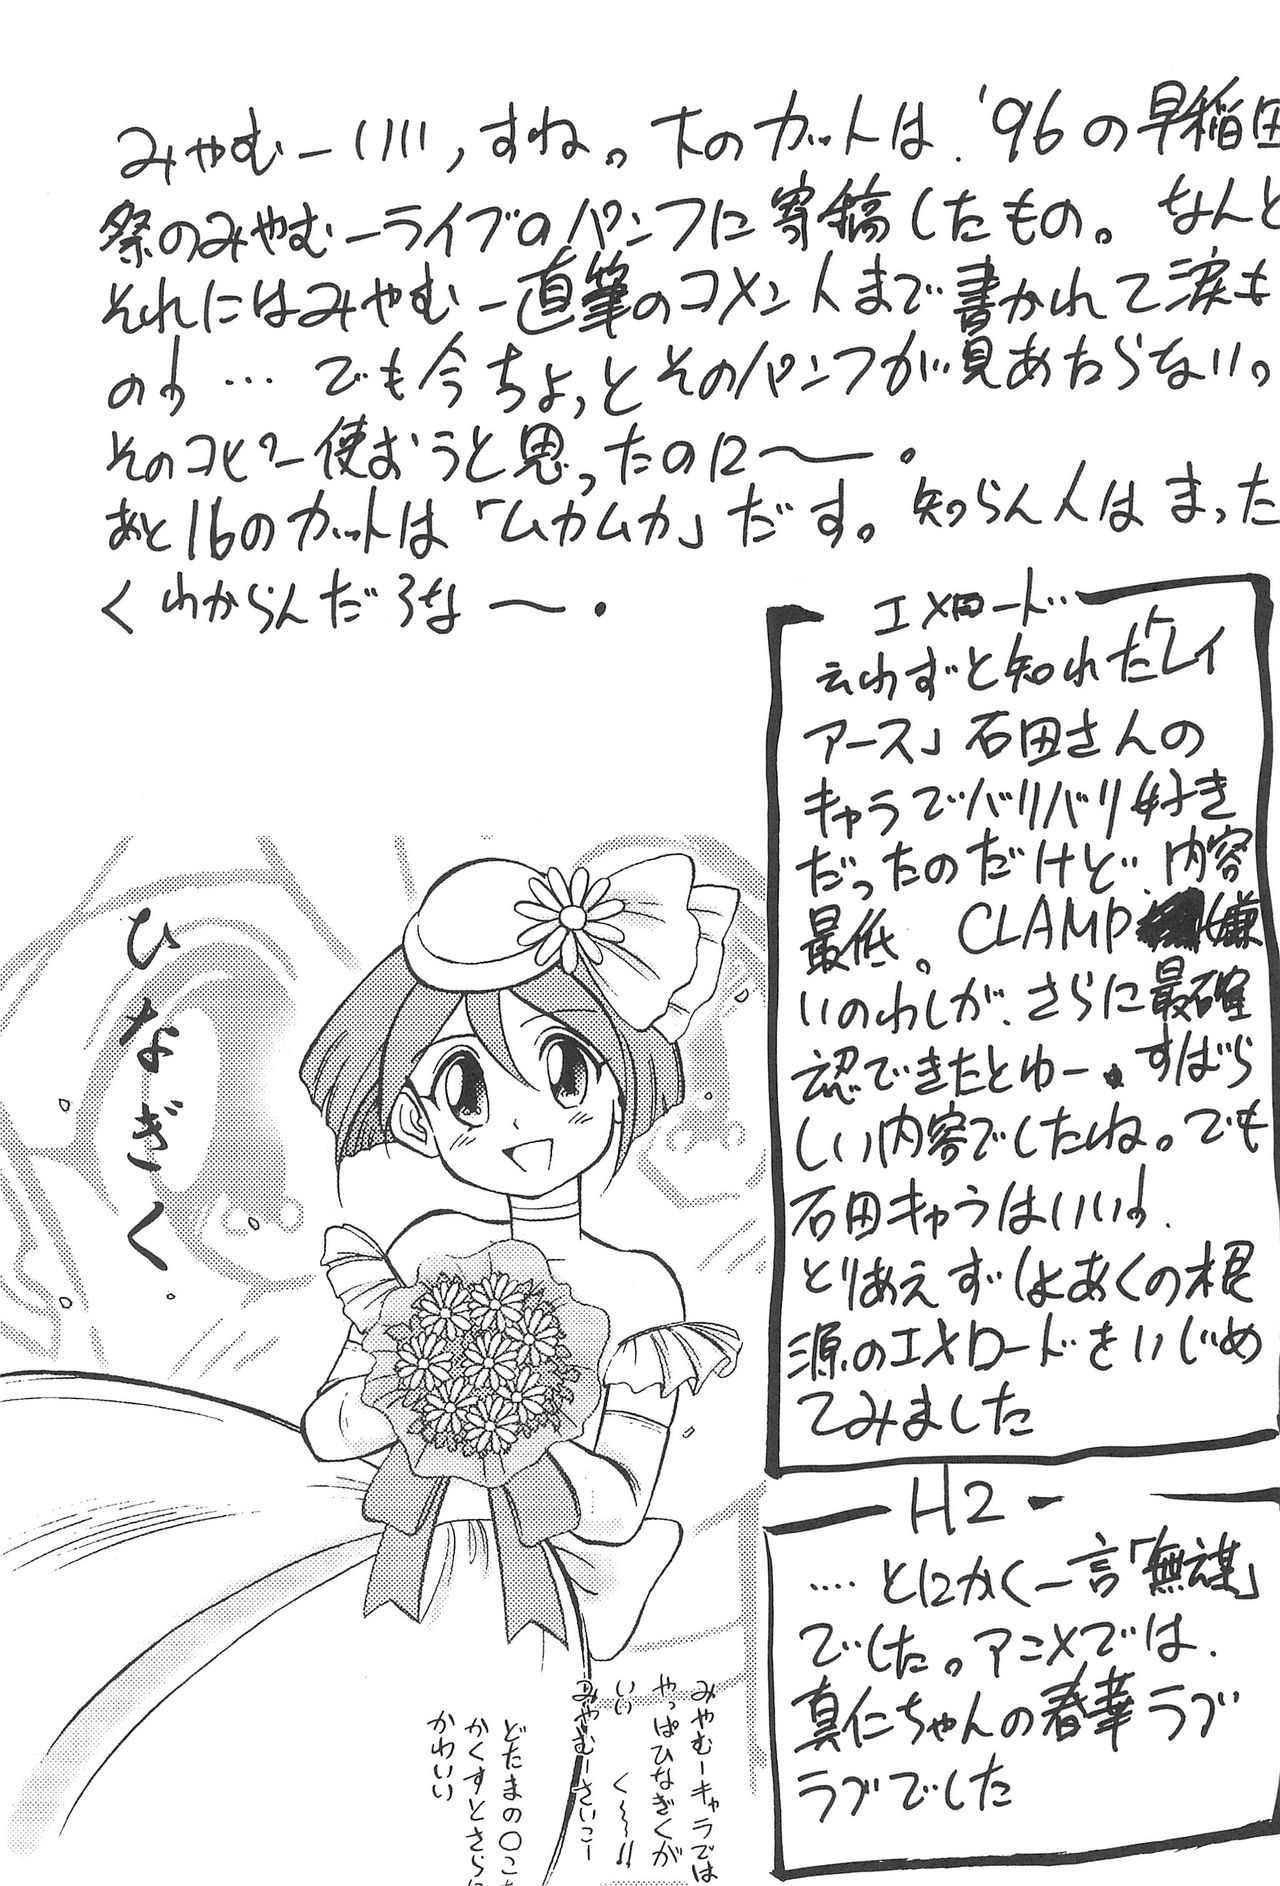 みやむーいい、すね。下のカットは、'96の早稲田
祭のみやむーライブのパンフに寄稿したもの。なんと
それにはみやむー直筆のコメントまで書かれて涙も
のよ…でも今ちょっとそのパンフが見あたらない。
そのコピー使おうと思ったのに〜。
あと16のカットは「ムカムカ」だす。知らん人はまった
くわからんだろな〜。
エメロード
云わずと知れた「レイ
アース」石田さんの
キャラでバリバリ好き
だったのだけど、内容
最低。CLAMP嫌
いのわしが、さらに最確
認できたとゆー。すばら
しい内容でしたね。でも
石田キャラはいいよ、
とりあえずしょあくの根
源のエメロードをいじめ
てみました
H2
…とにかく一言「無謀」
でした。アニメでは、
真仁ちゃんの春華ラブ
ラブでした
ひなぎく
みやむーキャラでは
やっぱひなぎくが
いい く〜!!
みやむーさいこー
どたまの〇こ
かくすとさらに
かわいい